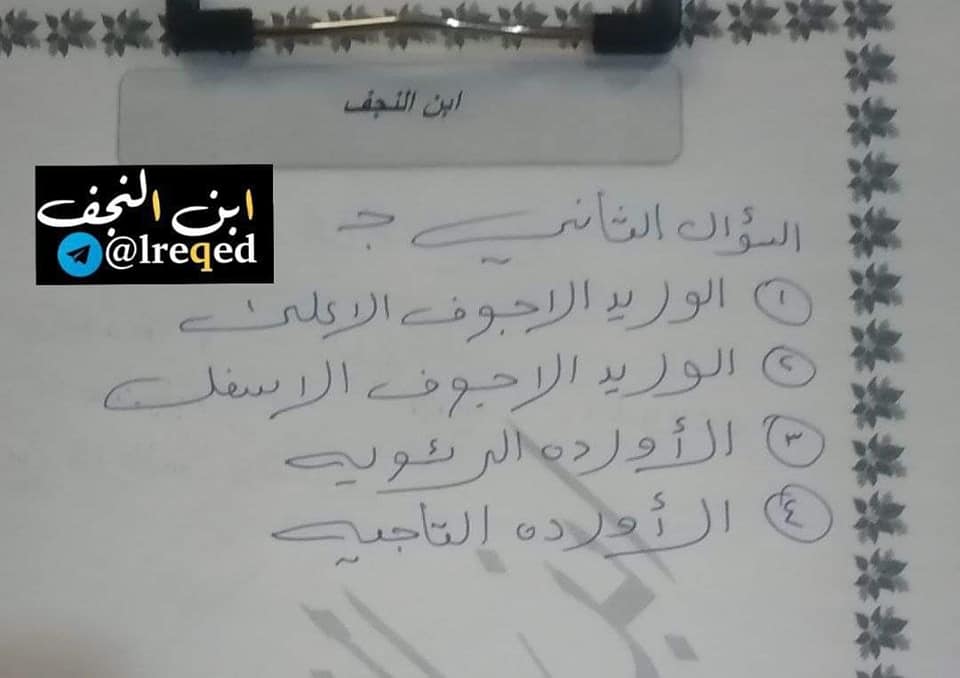 ابن النجف
ابن النجف
@lreqed
السؤال الثاني ج
١ الوريد الاجوف الاعلى
٢ الوريد الاجوف الاسفل
٣ الأورده الرئويه
٤ الأورده التاجيه
ابن